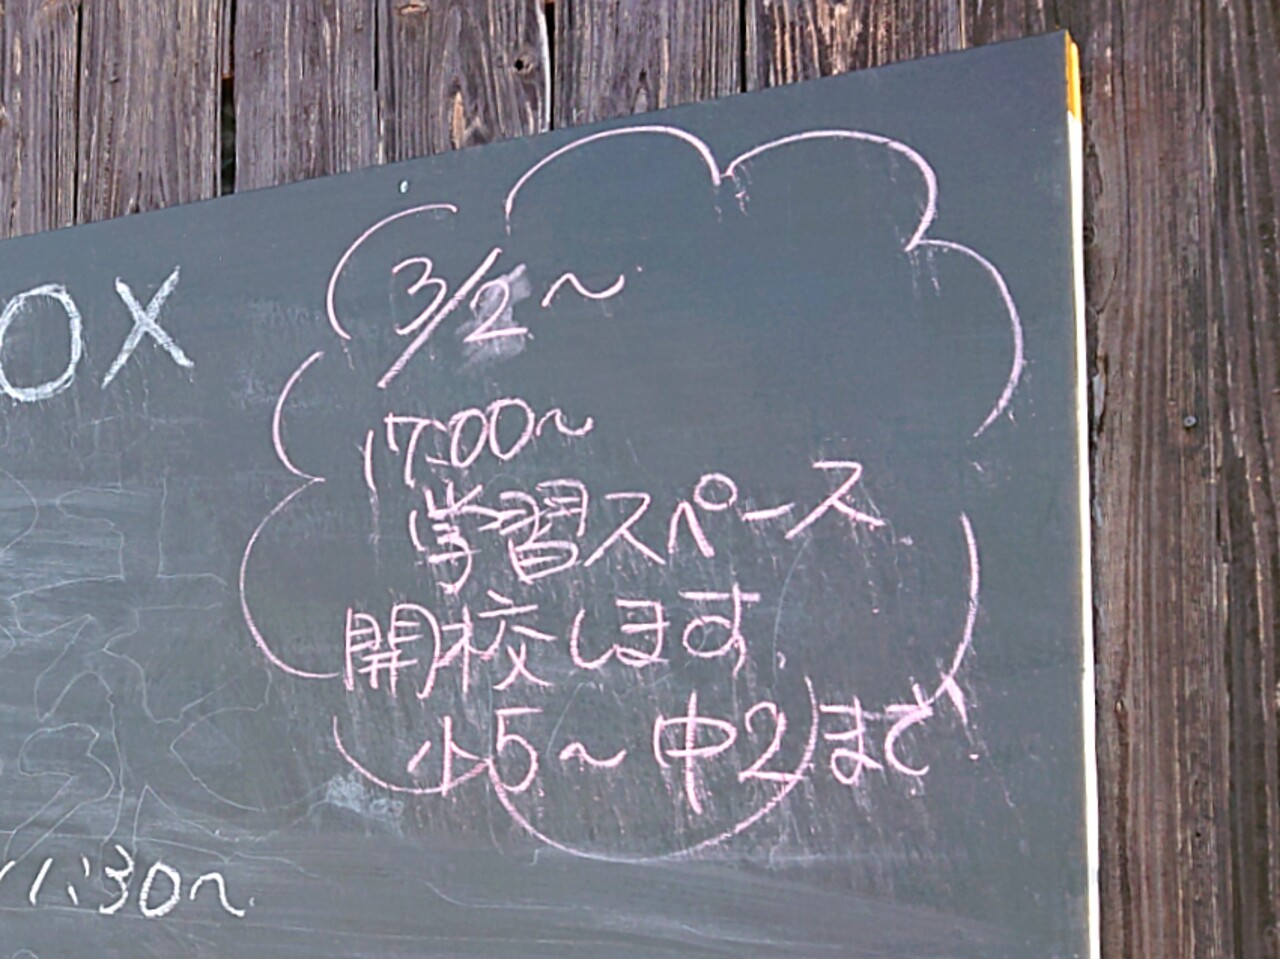 OX
3/2~
17:00~
学習スペース
開校します
小5~中2まで
30~